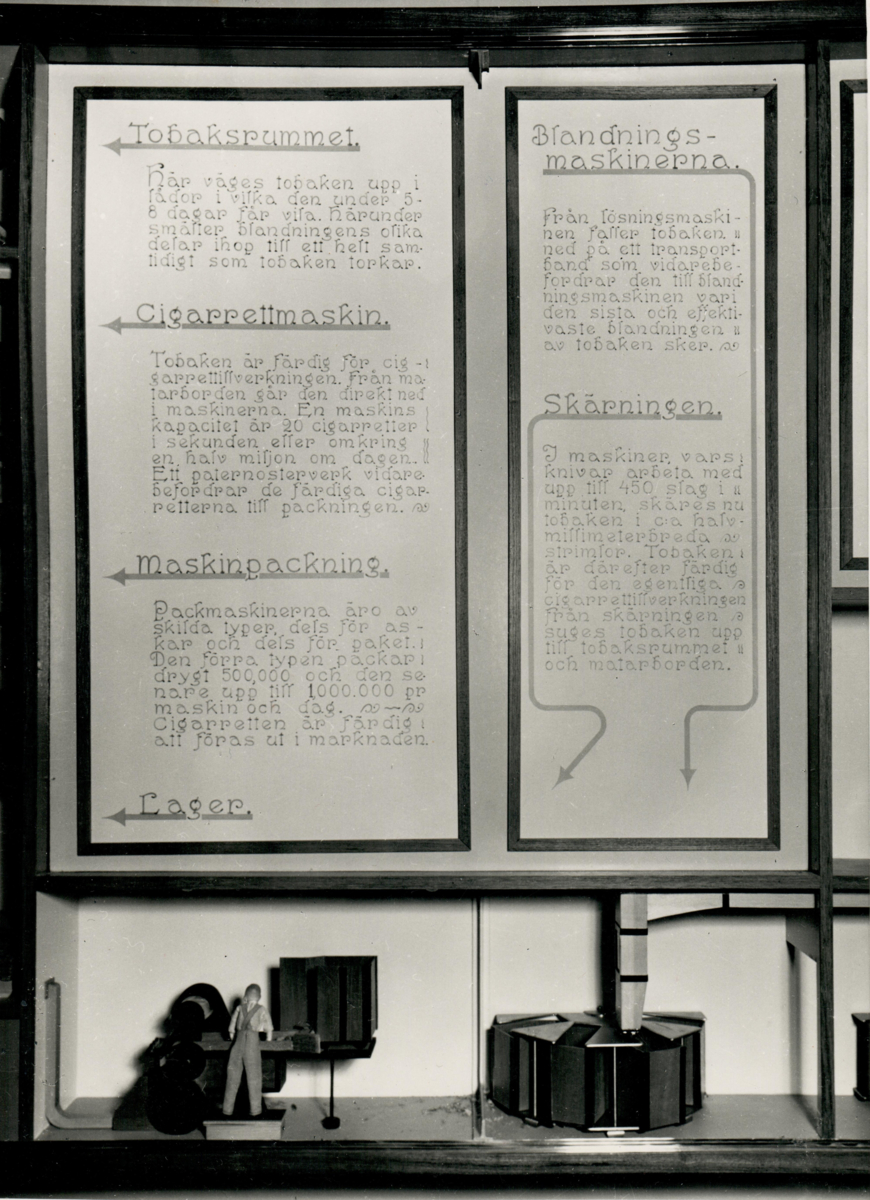 Tobaksrummet.
Här väges tobaken upp i
lådor i vilka den under 5-
8 dagar får vila. Härunder
smälter blandningens olika
delar ihop till ett helt sam-
tidigt som tobaken torkar.
Cigarrettmaskin.
Tobaken är färdig för cig-
garrettillverkningen. Från ma-
tarborden går den direkt ned
i maskinerna. En maskins
kapacitet är 20 cigarretter
i sekunden eller omkring
en halv miljon om dagen.
Ett paternosterverk vidare
befordrar de färdiga cigar-
retterna till packningen.
Maskinpackning.
Packmaskinerna äro av
skilda typer, dels för as-
kar och dels för paket.
Den förra typen packar
drygt 500,000 och den se
nare upp till 1,000.000 pr
maskin och dag.
Cigarretten är färdig
att föras ut i marknaden.
Lager.
Blandnings-
maskinerna.
Från lösningsmaski-
nen faller tobaken
ned på ett transport-
band som vidarebe-
fordrar den till bland-
ningsmaskinen vari
den sista och effekti-
vaste blandningen
av tobaken sker.
Skärningen.
I maskiner, vars
knivar arbeta med
upp till 450 slag i
minuten, skäres nu
tobaken i c:a halv-
millimeterbreda
strimlor. Tobaken
är därefter färdig
för den egentliga
cigarrettillverkningen
från skärningen
suges tobaken upp
till tobaksrummet
och matarborden.